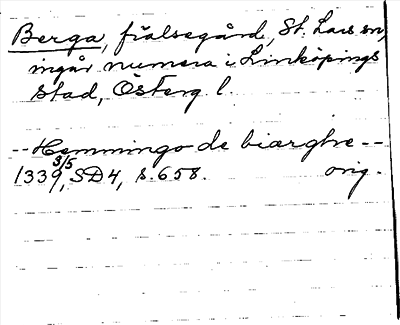 Berga, frälsegård, St. Lars sn,
ingår numera i Linköpings
stad, Österg l.
-- Hemmingo de biærghe --
1339 3/5, SD 4, s. 658. orig.